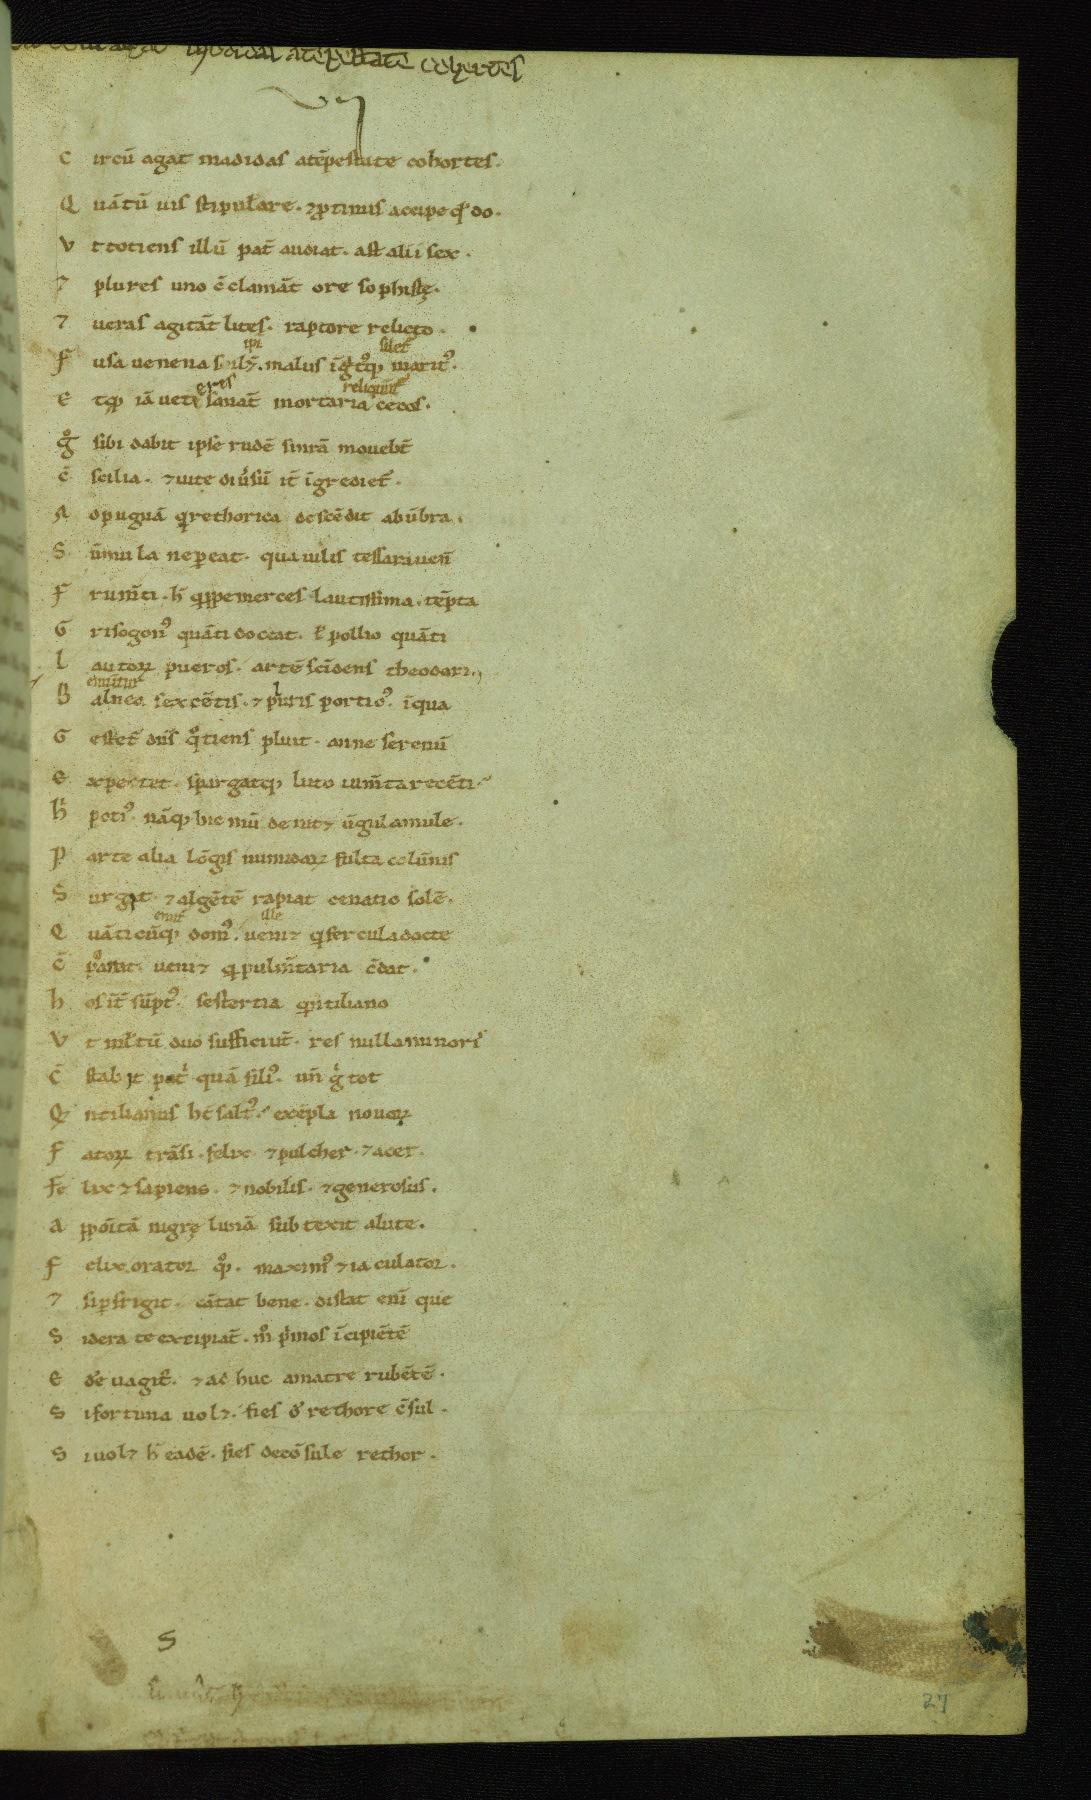 madidas atēpestate cohertes
C ircū agat madidas atēpestate cohortes.
Q uātū uis stipulare. ⁊ ꝓtinus accipe qd do.
V t totiens illū pat̄ audiat. ast alii sex.
⁊ plures uno c̄clamāt ore sophistę.
⁊ ueras agitāt lites. raptore relicto.
ipi silet
F usa uenena silꝫ. malus īgͣtꝰqꝫ marit᷒.
eres reliquūt
E tqꝫ iā uet̄ sanāt mortaria cecos.
g̊ sibi dabit ipse rudē sinrā mouebt̄
c̄ scilia. ⁊ uite diu͛sū it̄ īgrediet̄.
A d pugnā q̄ rethorica descēdit ab ūbra.
S ūmula ne pereat. qua uilis tessara uen̄
F rum̄ti. h̄ q̄ppe merces lautissima. tēpta
G risogon᷒ quāti doceat. ł pollio quāti
L autoꝝ pueros. artē scīdens theodori.
B alnea sexcētis. ⁊ pluris portic᷒. īqua
G estet̄ dn̄s q̊tiens pluit. anne serenū
E xpectet. spargatqꝫ luto ium̄ta recēti.
h̄ poti᷒. nāqꝫ hic mūde nitꝫ ūgula mule.
P arte alia lōgis numidaꝝ fulta colūnis
S urgat. ⁊ algētē rapiat cenatio solē.
ille
Q uāti cūqꝫ dom᷒. uenitꝫ q̄ fercula docte
c̄ ponat. uenitꝫ q̄ pulm̄taria c̄dat.
h os īt̄ sūpt᷒. sestertia q̄ntiliano
V t ml̄tū duo sufficiūt. res nulla minori᷒
c̄ stabit pat̍ quā fili᷒. un̄ g̍ tot
Q ntilianus h̄t salt᷒. exēpla nouoꝝ
F atoꝝ trāsi. felix. ⁊ pulcher. ⁊ acer.
Fe lix ⁊ sapiens. ⁊ nobilis. ⁊ generosus.
A ppoītā nigrę lunā subtexit alute.
F elix orator q̊qꝫ. maxim᷒ ⁊ iaculator.
⁊ si ꝑfrigit. cātat bene. distat enī que
S idera te excipiāt. m̊ p̍mos īcipiētē
E de͛ uagit᷒. ⁊ ad huc amatre rubētē.
S i fortuna uolꝫ. fies d͛ rethore c̄sul.
S i uolꝫ h̄ eadē. fies decōsule rethor.
S
27